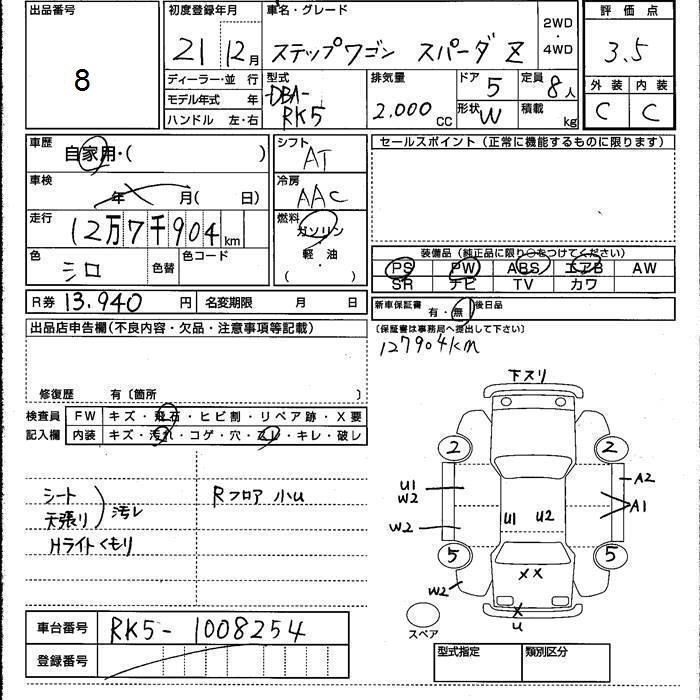 出品番号
8
初度登録年月
21 12月
車名・グレード
ステップワゴン スパーダ Z
2WD
・
4WD
評価点
3.5
外装 内装
C C
ディーラー・並行
モデル年式 年
ハンドル 左・右
型式
DBA-
RK5
排気量
2,000 CC
ドア
5
定員
8人
形状
W
積載
kg
車歴
自家用・( )
シフト
AT
セールスポイント(正常に機能するものに限ります)
車検
年 月( 日)
冷房
AAC
走行
12万7千904 km
燃料
ガソリン
・
軽・油
( )
色
シロ
色替
色コード
装備品(純正品に限り○をつけてください)
PS PW ABS エアB AW
SR ナビ TV カワ
R券 13.940 円 名変期限 月 日
新車保証書
有・無
後日品
〔保証書は事務局へ提出して下さい〕
127904km
出品店申告欄(不良内容・欠品・注意事項等記載)
修復歴 有〔箇所 〕
検査員
記入欄
FW キズ・飛石・ヒビ割・リペア跡・X要
内装 キズ・汚れ・コゲ・穴・スレ・キレ・破レ
シート
天張り
汚レ
Hライトくもり
Rフロア 小u
下スリ
2 2
U1
W2
A2
A1
W2
U1 U2
5 5
W2
XX
X
U
スペア
車台番号 RK5-1008254
登録番号
型式指定 類別区分